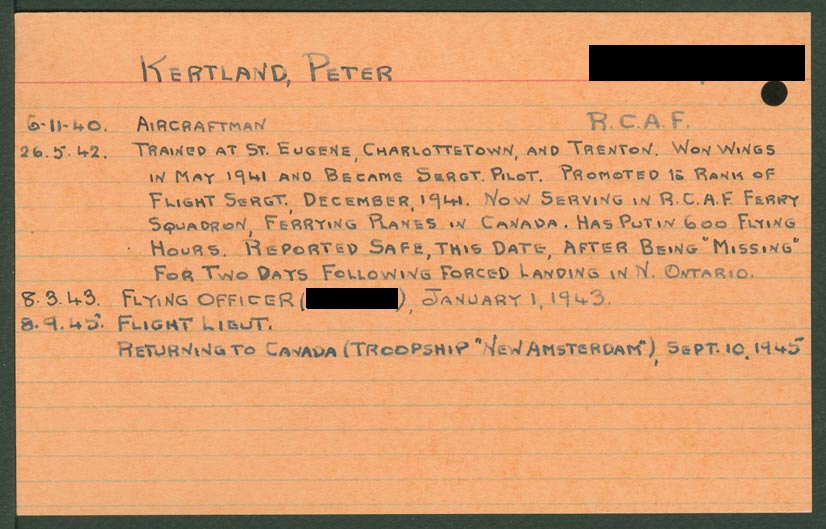 KERTLAND, PETER
6-11-40. AIRCRAFTMAN R.C.A.F.
26.5.42. TRAINED AT ST. EUGENE, CHARLOTTETOWN, AND TRENTON. WON WINGS
IN MAY 1941 AND BECAME SERGT. PILOT. PROMOTED TO RANK OF
FLIGHT SERGT., DECEMBER, 1941. NOW SERVING IN R.C.A.F. FERRY
SQUADRON, FERRYING PLANES IN CANADA. HAS PUT IN 600 FLYING
HOURS. REPORTED SAFE, THIS DATE, AFTER BEING "MISSING"
FOR TWO DAYS FOLLOWING FORCED LANDING IN N. ONTARIO.
8.3.43. FLYING OFFICER ( ), JANUARY 1, 1943.
8.9.45. FLIGHT LIEUT.
RETURNING TO CANADA (TROOPSHIP "NEW AMSTERDAM"), SEPT. 10, 1945